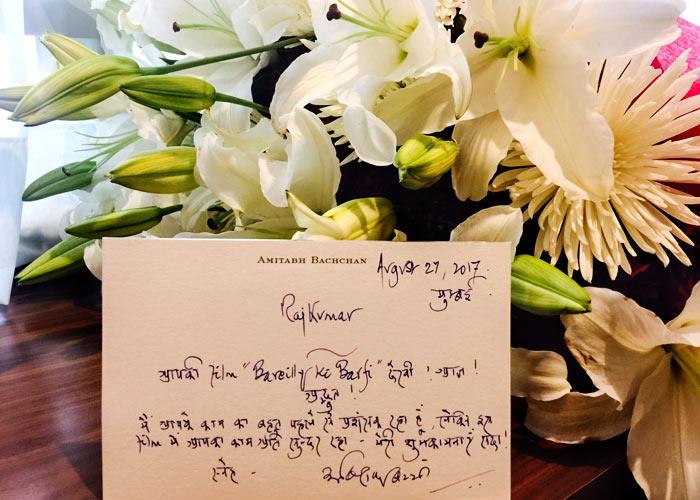 AMITABH BACHCHAN
August 27, 2017.
मुम्बई
RajKumar
आपकी film "Bareilly Ke Barfi" देखी ! आज !
अद्भुत !
मैं आपके काम का बहुत पहले से प्रशंसक रहा हूँ, लेकिन इस
film में आपका काम अति सुन्दर रहा - मेरी शुभकामनाएं सदा !
स्नेह -